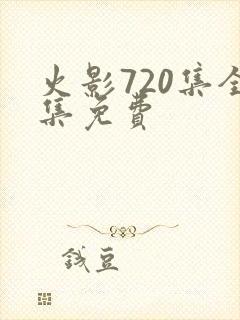 火影720集全
集免費
錢豆